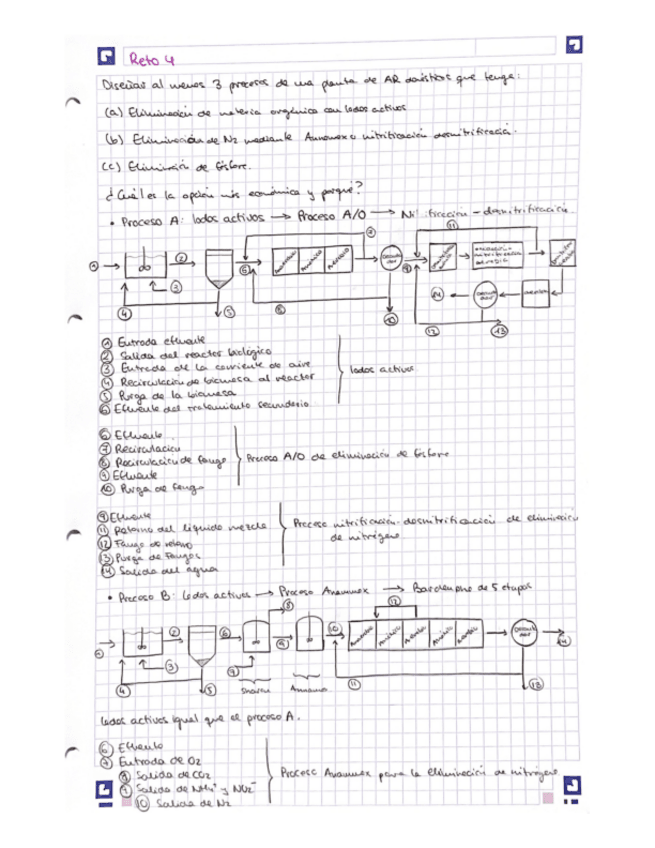 Reto 4
Diseñar al menos 3 procesos de una planta de AR domésticas que tenga:
(a) Eliminación de materia orgánica con lodos activos
(b) Eliminación de N2 mediante Anammox o nitrificación desnitrificación.
(c) Eliminación de fósforo.
¿Cuál es la opción más económica y porqué?
• Proceso A: lodos activos → Proceso A/O → Nitrificación - desnitrificación
① Entrada efluente
② Salida del reactor biológico
③ Entrada de la corriente de aire
④ Recirculación de biomasa al reactor
⑤ Purga de la biomasa
⑥ Efluente del tratamiento secundario
lodos activos
⑥ Efluente
⑦ Recirculación
⑧ Recirculación de fango
⑨ Efluente
⑩ Purga de fango
Proceso A/O de eliminación de fósforo
⑨ Efluente
⑪ Retorno del líquido mezcla
⑫ Fango de retorno
⑬ Purga de Fangos
⑭ Salida del agua
Proceso nitrificación-desnitrificación de eliminación
de nitrógeno
• Proceso B: lodos activos → Proceso Anammox → Bardenpho de 5 etapas
Sharon
Anammox
lodos activos igual que el proceso A.
⑥ Efluente
⑦ Entrada de O2
⑧ Salida de CO2
⑨ Salida de NH4+ y NO2-
⑩ Salida de N2
Proceso Anammox para la eliminación de nitrógeno